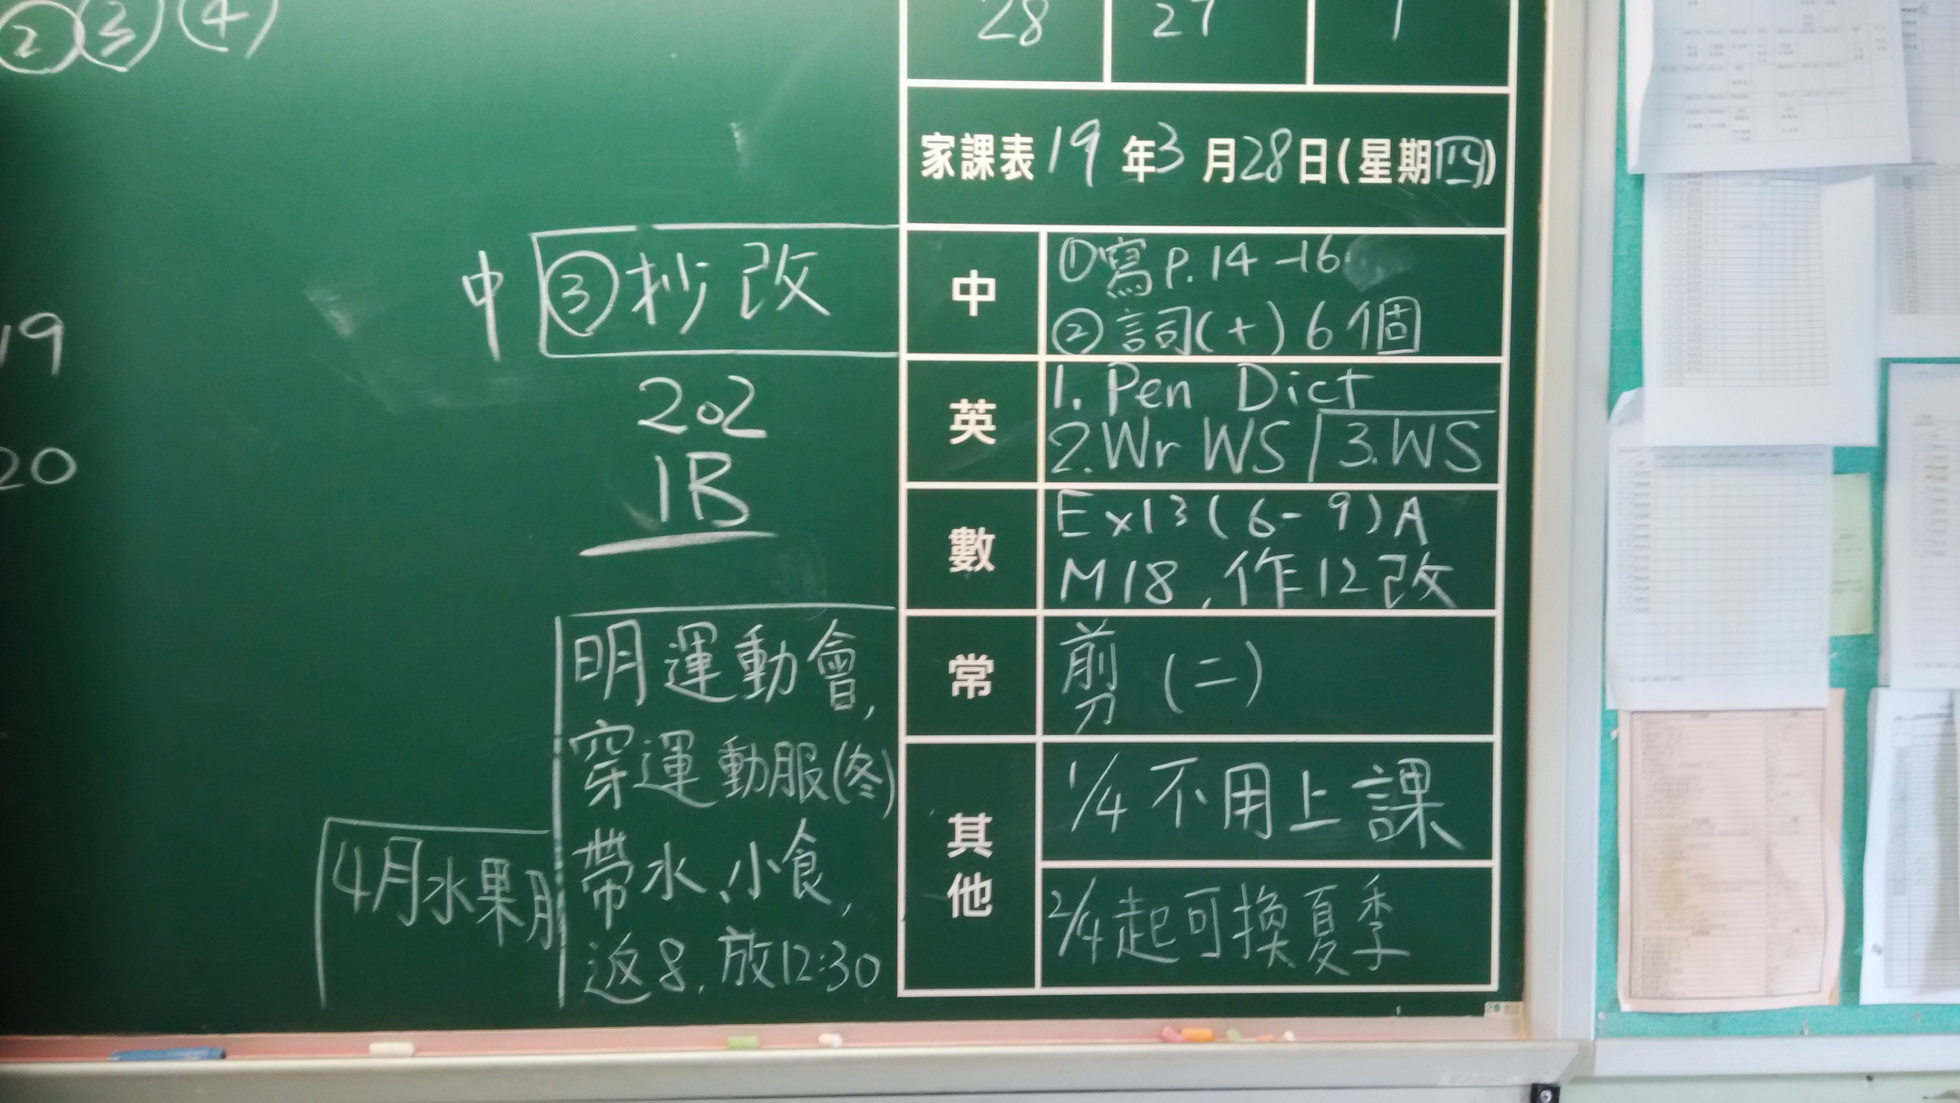 ② ③ ④
28 27 1
家課表 19年3月28日(星期四)
中 ①寫P.14-16
②詞(+)6個
中 ③抄改
英 1. Pen Dict
2. Wr WS 3. WS
數 Ex13(6-9)A
M18, 作12改
常 剪(二)
其他 1/4不用上課
2/4起可換夏季
19
20
202
1B
明運動會,
穿運動服(冬)
帶水、小食,
返8, 放12:30
4月水果月